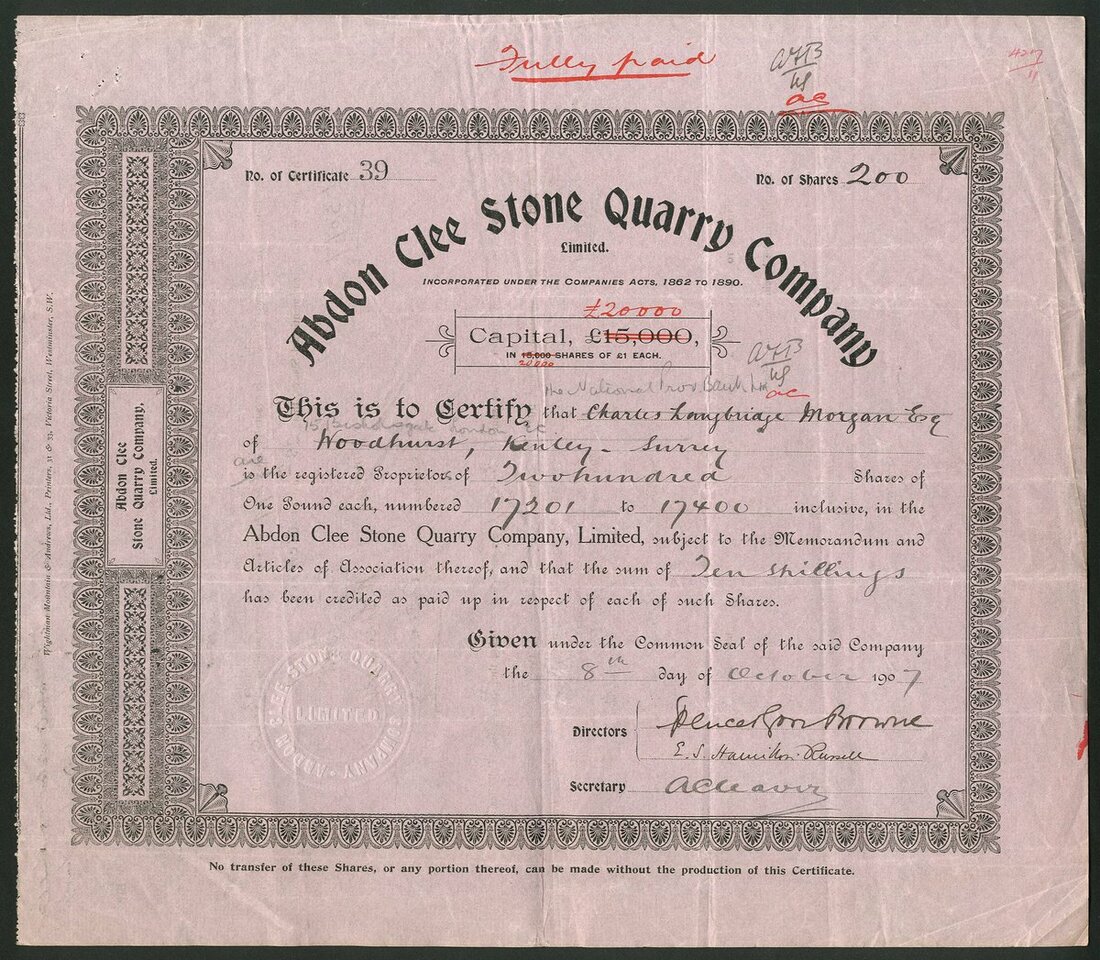 Fully paid
No. of Certificate 39
No. of Shares 200
Abdon Clee Stone Quarry Company
Limited.
INCORPORATED UNDER THE COMPANIES ACTS, 1862 TO 1890.
£20000
Capital, £15,000,
IN 15,000 SHARES OF £1 EACH.
20000
the National Prov Bank Ltd
This is to Certify that Charles Langbridge Morgan Esq
15 Bishopsgate London EC
of Woodhurst, Kenley - Surrey
are
is the registered Proprietors of Two hundred Shares of
One Pound each, numbered 17201 to 17400 inclusive, in the
Abdon Clee Stone Quarry Company, Limited, subject to the Memorandum and
Articles of Association thereof, and that the sum of Ten shillings
has been credited as paid up in respect of each of such Shares.
Given under the Common Seal of the said Company
the 8th day of October 1907
Directors
E. S. Hamilton Russell
Secretary A Cleaver
ABDON CLEE STONE QUARRY COMPANY
LIMITED
No transfer of these Shares, or any portion thereof, can be made without the production of this Certificate.
Abdon Clee
Stone Quarry Company,
Limited.
Wightman Mountain & Andrews, Ltd., Printers, 31 & 33, Victoria Street, Westminster, S.W.